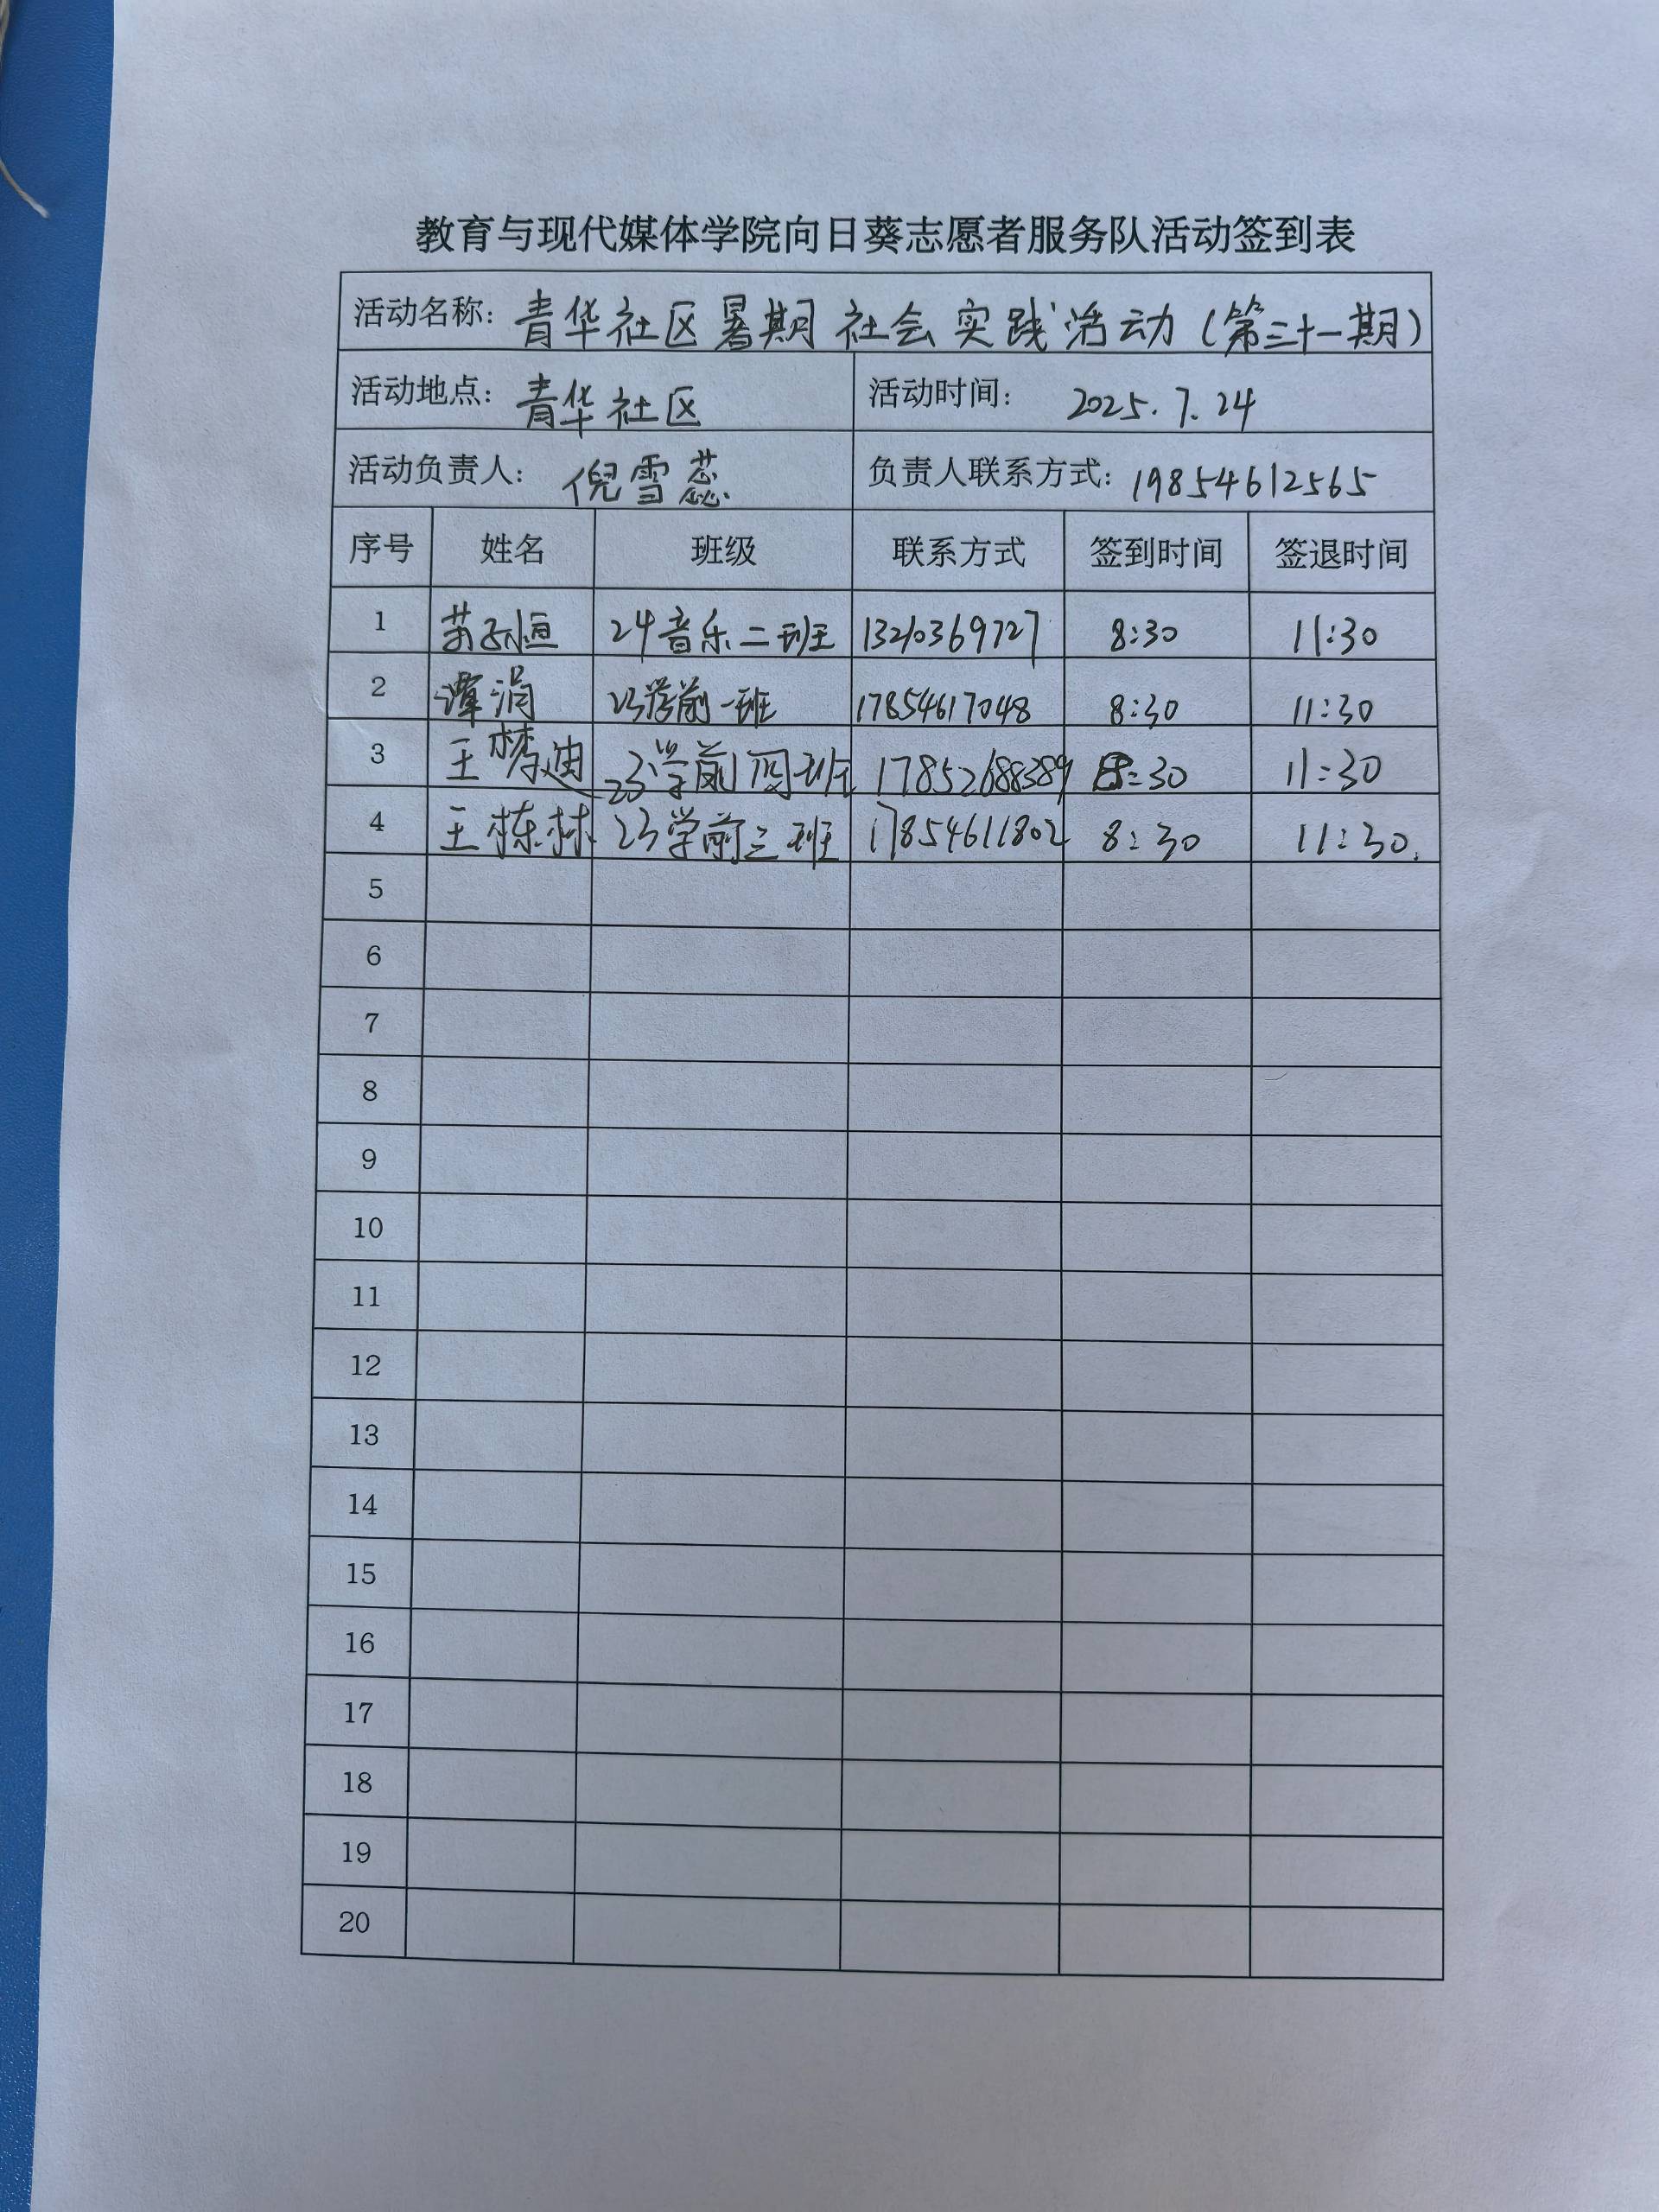 教育与现代媒体学院向日葵志愿者服务队活动签到表
活动名称：青华社区暑期社会实践活动（第三十一期）
活动地点：青华社区 活动时间：2025.7.24
活动负责人：倪雪蕊 负责人联系方式：19854612565
序号 姓名 班级 联系方式 签到时间 签退时间
1 24音乐二班 13210369727 8:30 11:30
2 谭润 23学前一班 17854617048 8:30 11:30
3 王梦迪 23学前四班 17852688389 8:30 11:30
4 王栋林 23学前三班 17854611802 8:30 11:30.
5
6
7
8
9
10
11
12
13
14
15
16
17
18
19
20